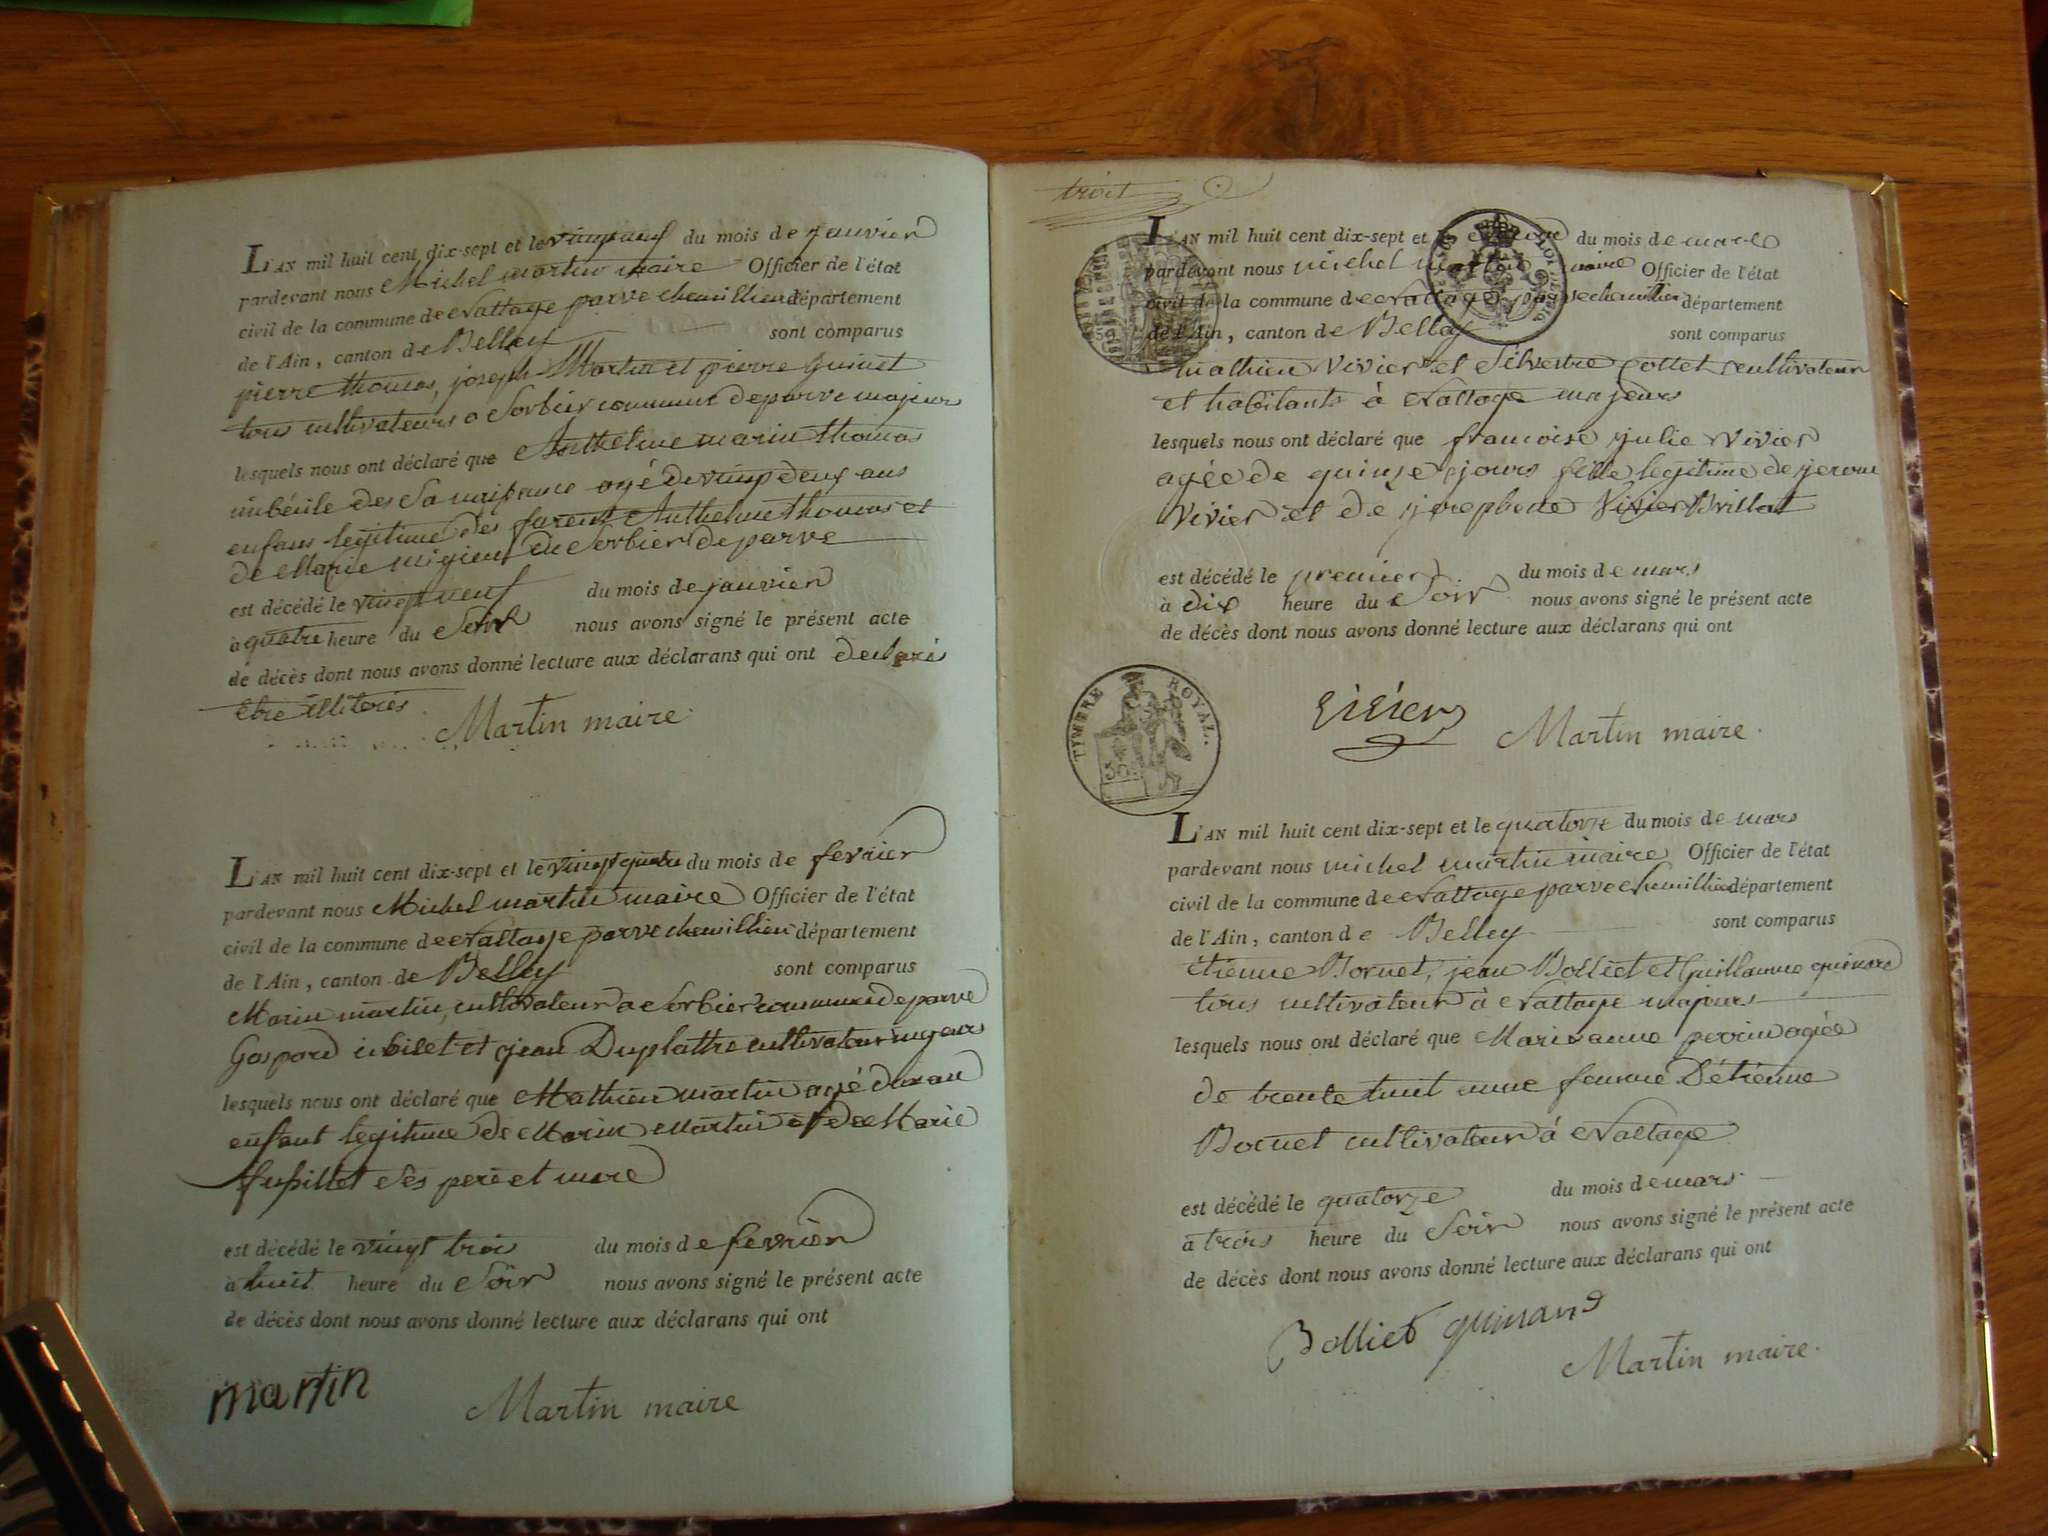 L'AN mil huit cent dix-sept et le vingt neuf du mois de janvier
pardevant nous Michel martin maire Officier de l'état
civil de la commune de nattage parve chemillieu département
de l'Ain, canton de Belley sont comparus
pierre thomas, joseph Martin et pierre guinet
tous cultivateurs a Sorbier commune de parve majeurs
lesquels nous ont déclaré que Anthelme marin thomas
imbécile des Sa naissance agé de vingt deux ans
enfans légitime des Anthelme thomas et
de Marie migieu du Sorbier de parve
est décédé le vingt neuf du mois de janvier
à quatre heure du Soir nous avons signé le présent acte
de décès dont nous avons donné lecture aux déclarans qui ont declaré
être illiterés
Martin maire
L'AN mil huit cent dix-sept et le vingt quatre du mois de fevrier
pardevant nous Michel martin maire Officier de l'état
civil de la commune de nattage parve chemillieu département
de l'Ain, canton de Belley sont comparus
Marin martin cultivateur a Sorbier commune de parve
Gaspard et jean Duplattre cultivateur majeurs
lesquels nous ont déclaré que Mathieu martin agé dun an
enfant legitime de Marin Martin et de Marie
fusillet Ses pere et mere
est décédé le vingt trois du mois de fevrier
à huit heure du Soir nous avons signé le présent acte
de décès dont nous avons donné lecture aux déclarans qui ont
martin
Martin maire
troit
L'AN mil huit cent dix-sept et le du mois de mars
pardevant nous michel martin maire Officier de l'état
civil de la commune de nattages parve chemillieu département
de l'Ain, canton de Belley sont comparus
mathieu vivier et Silvestre cottet cultivateur
et habitants à nattage majeurs
lesquels nous ont déclaré que francoise julie vivier
agée de quinze jours fille legitime de jerome
vivier et de josephete Vivier Brillat
est décédé le premier du mois de mars
à dix heure du Soir nous avons signé le présent acte
de décès dont nous avons donné lecture aux déclarans qui ont
TIMBRE ROYAL.
50
vivier
Martin maire.
L'AN mil huit cent dix-sept et le quatorze du mois de mars
pardevant nous michel martin maire Officier de l'état
civil de la commune de nattage parve chemillieu département
de l'Ain, canton de Belley sont comparus
étienne Bornet, jean Bolliet et Guillaume quinard
tous cultivateur à nattage majeurs
lesquels nous ont déclaré que Marieanne perrin agée
de trente huit anne femme D'étienne
Bornet cultivateur à nattage
est décédé le quatorze du mois de mars
à trois heure du Soir nous avons signé le présent acte
de décès dont nous avons donné lecture aux déclarans qui ont
Bolliet quinard
Martin maire.